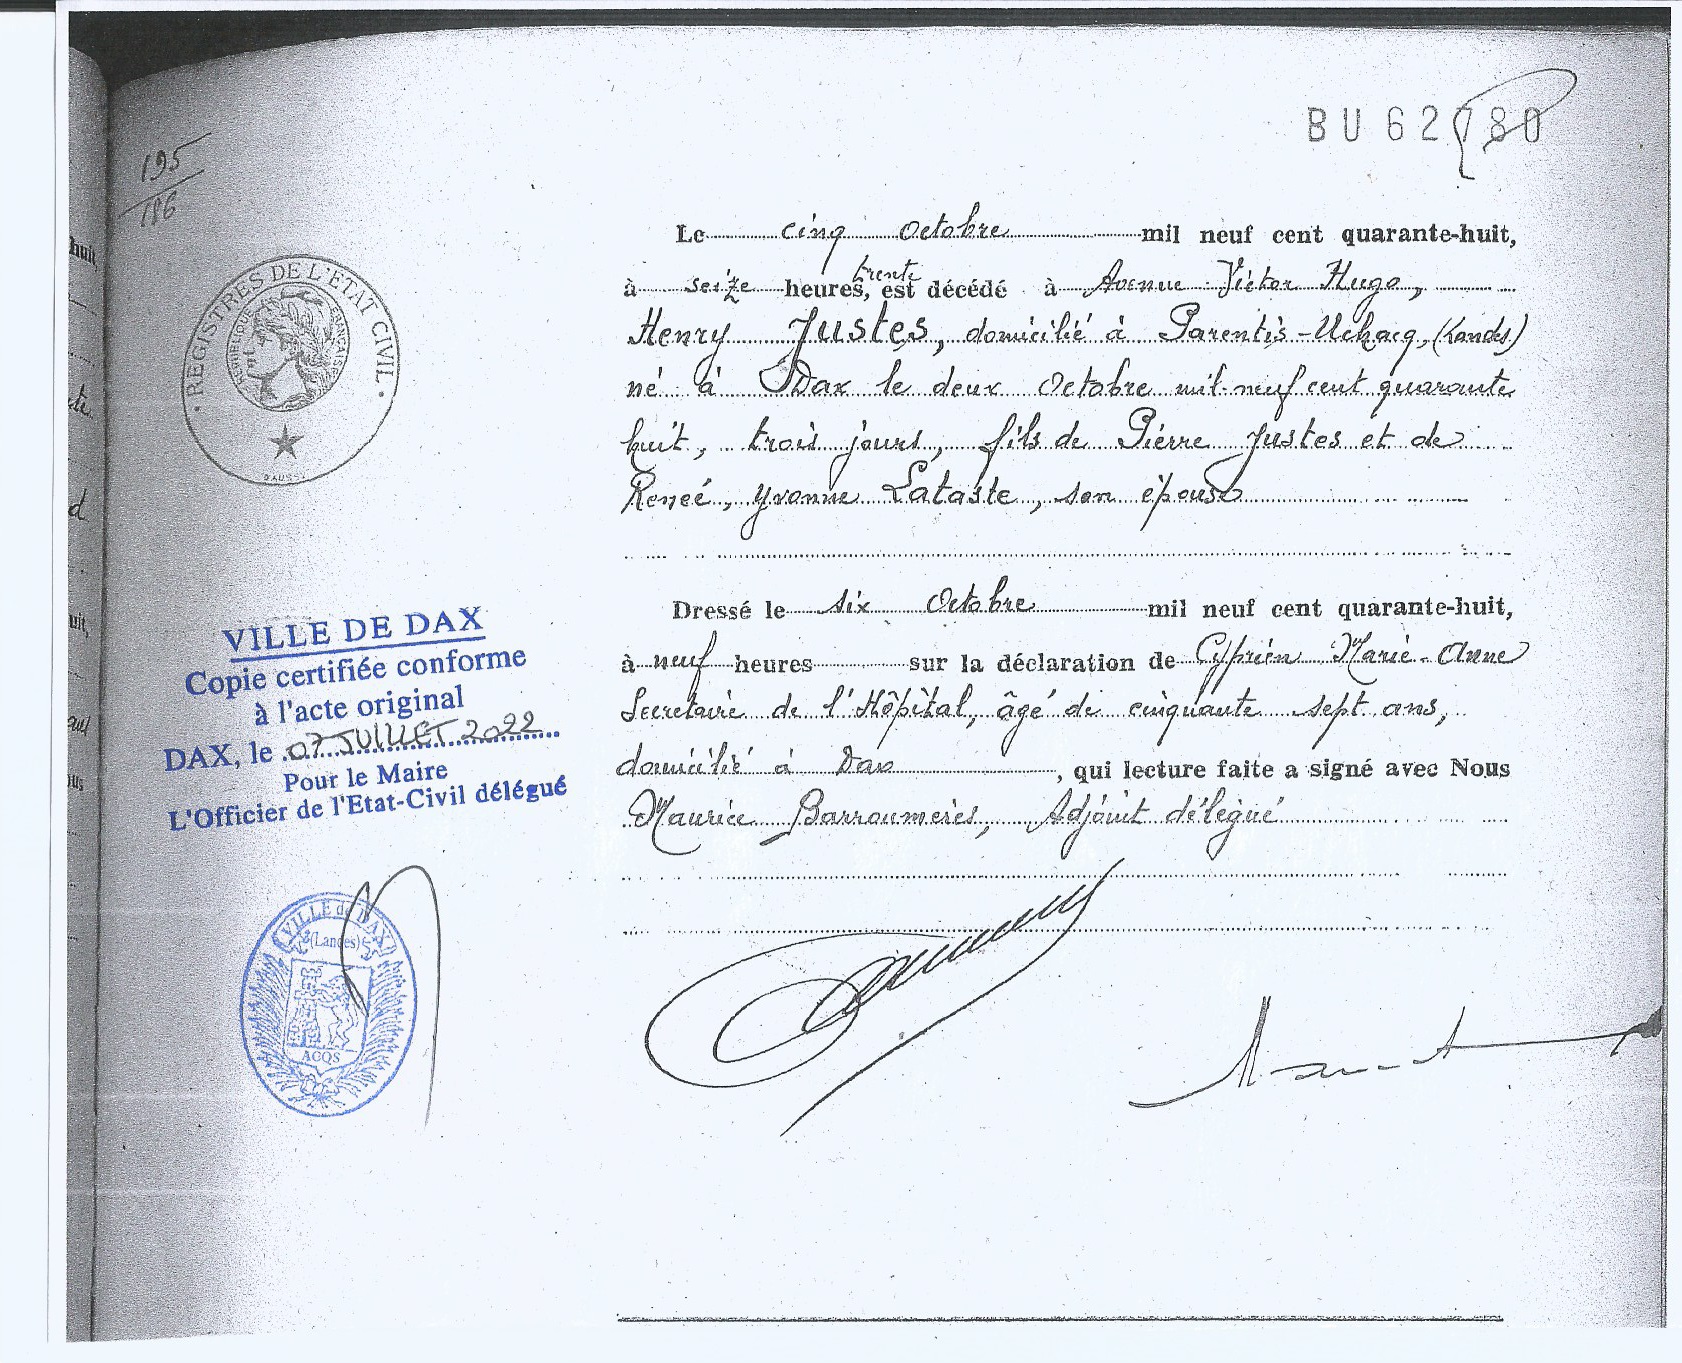 BU 62780
195
186
huit,
REGISTRES DE L'ETAT CIVIL
REPUBLIQUE FRANCAISE
Le cinq Octobre mil neuf cent quarante-huit,
trente
à seize heures, est décédé à Avenue Victor Hugo,
Henry Justes, domicilié à Parentis-Uchacq, (Landes)
né à Dax le deux Octobre mil-neuf cent quarante
huit, trois jours, fils de Pierre Justes et de
Renée, Yvonne Lataste, son épouse
Dressé le six Octobre mil neuf cent quarante-huit,
à neuf heures sur la déclaration de Cyprien Marie-Anne
Secretaire de l'Hôpital, âgé de cinquante sept ans,
domicilié à Dax, qui lecture faite a signé avec Nous
Maurice Barroumères, Adjoint délégué
VILLE DE DAX
Copie certifiée conforme
à l'acte original
DAX, le 07 JUILLET 2022
Pour le Maire
L'Officier de l'Etat-Civil délégué
VILLE de DAX
(Landes)
ACQS